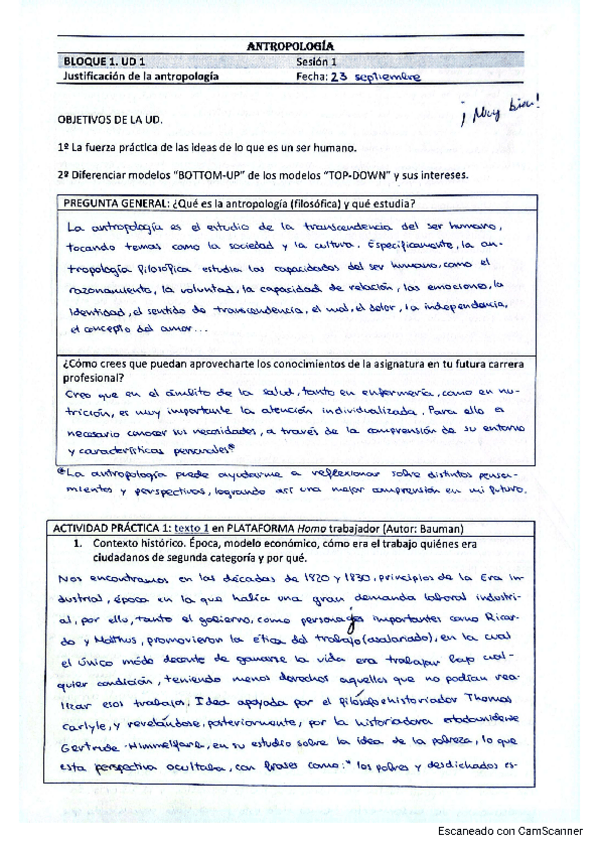 ANTROPOLOGÍA
BLOQUE 1. UD 1 Sesión 1
Justificación de la antropología Fecha: 23 septiembre
¡Muy bien!
OBJETIVOS DE LA UD.
1º La fuerza práctica de las ideas de lo que es un ser humano.
2º Diferenciar modelos "BOTTOM-UP" de los modelos "TOP-DOWN" y sus intereses.
PREGUNTA GENERAL: ¿Qué es la antropología (filosófica) y qué estudia?
La antropología es el estudio de la transcendencia del ser humano,
tocando temas como la sociedad y la cultura. Específicamente, la an-
tropología filosófica estudia las capacidades del ser humano, como el
razonamiento, la voluntad, la capacidad de relación, las emociones, la
identidad, el sentido de transcendencia, el mal, el dolor, la independencia,
el concepto del amor...
¿Cómo crees que puedan aprovecharte los conocimientos de la asignatura en tu futura carrera
profesional?
Creo que en el ámbito de la salud, tanto en enfermería, como en nu-
trición, es muy importante la atención individualizada. Para ello es
necesario conocer sus necesidades, a través de la comprensión de su entorno
y características personales*
*La antropología puede ayudarme a reflexionar sobre distintos pensa-
mientos y perspectivas, logrando así una mejor comprensión en mi futuro.
ACTIVIDAD PRÁCTICA 1: texto 1 en PLATAFORMA Homo trabajador (Autor: Bauman)
1. Contexto histórico. Época, modelo económico, cómo era el trabajo quiénes era
ciudadanos de segunda categoría y por qué.
Nos encontramos en las décadas de 1820 y 1830, principios de la Era In-
dustrial, época en la que había una gran demanda laboral industri-
al, por ello, tanto el gobierno, como personajes importantes como Ricar-
do y Malthus, promovieron la ética del trabajo (asalariado), en la cual
el único modo decente de ganarse la vida era trabajar bajo cual-
quier condición, teniendo menos derechos aquellos que no podían rea-
lizar esos trabajos. Idea apoyada por el filósofo e historiador Thomas
Carlyle, y revelándose, posteriormente, por la historiadora estadounidense
Gertrude Himmelfarb, en su estudio sobre la idea de la pobreza, lo que
esta perspectiva ocultaba, con frases como: "los pobres y desdichados es-
Escaneado con CamScanner